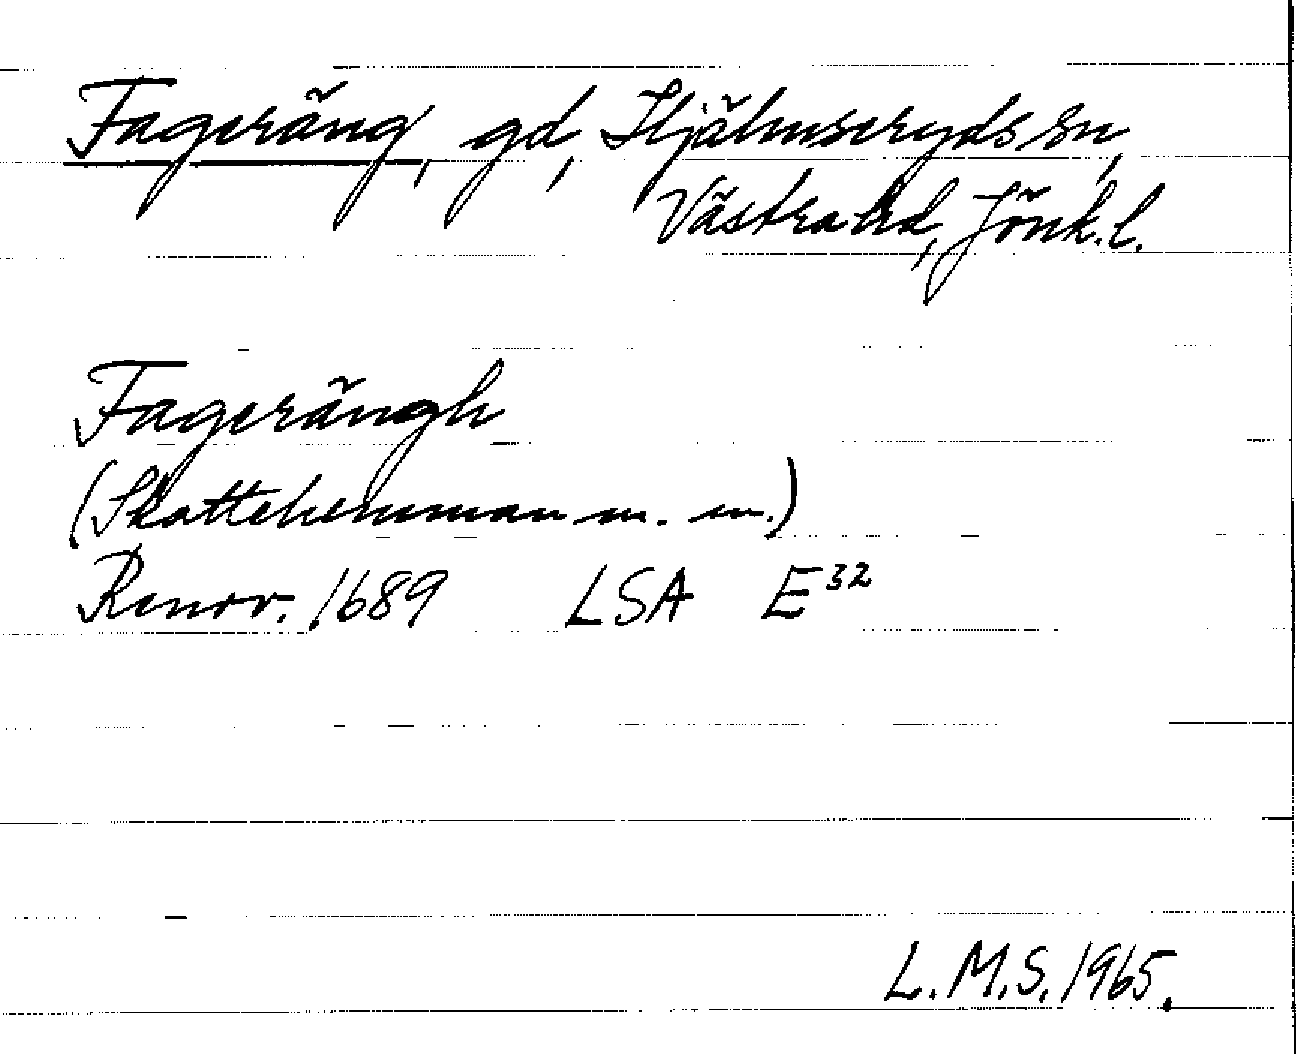 Fageräng, gd, Hjälmseryds sn,
Västra hd, Jönk. l.
Fagerängh
(Skattehemman m. m.)
Renov. 1689 LSA E³²
L. M. S. 1965.